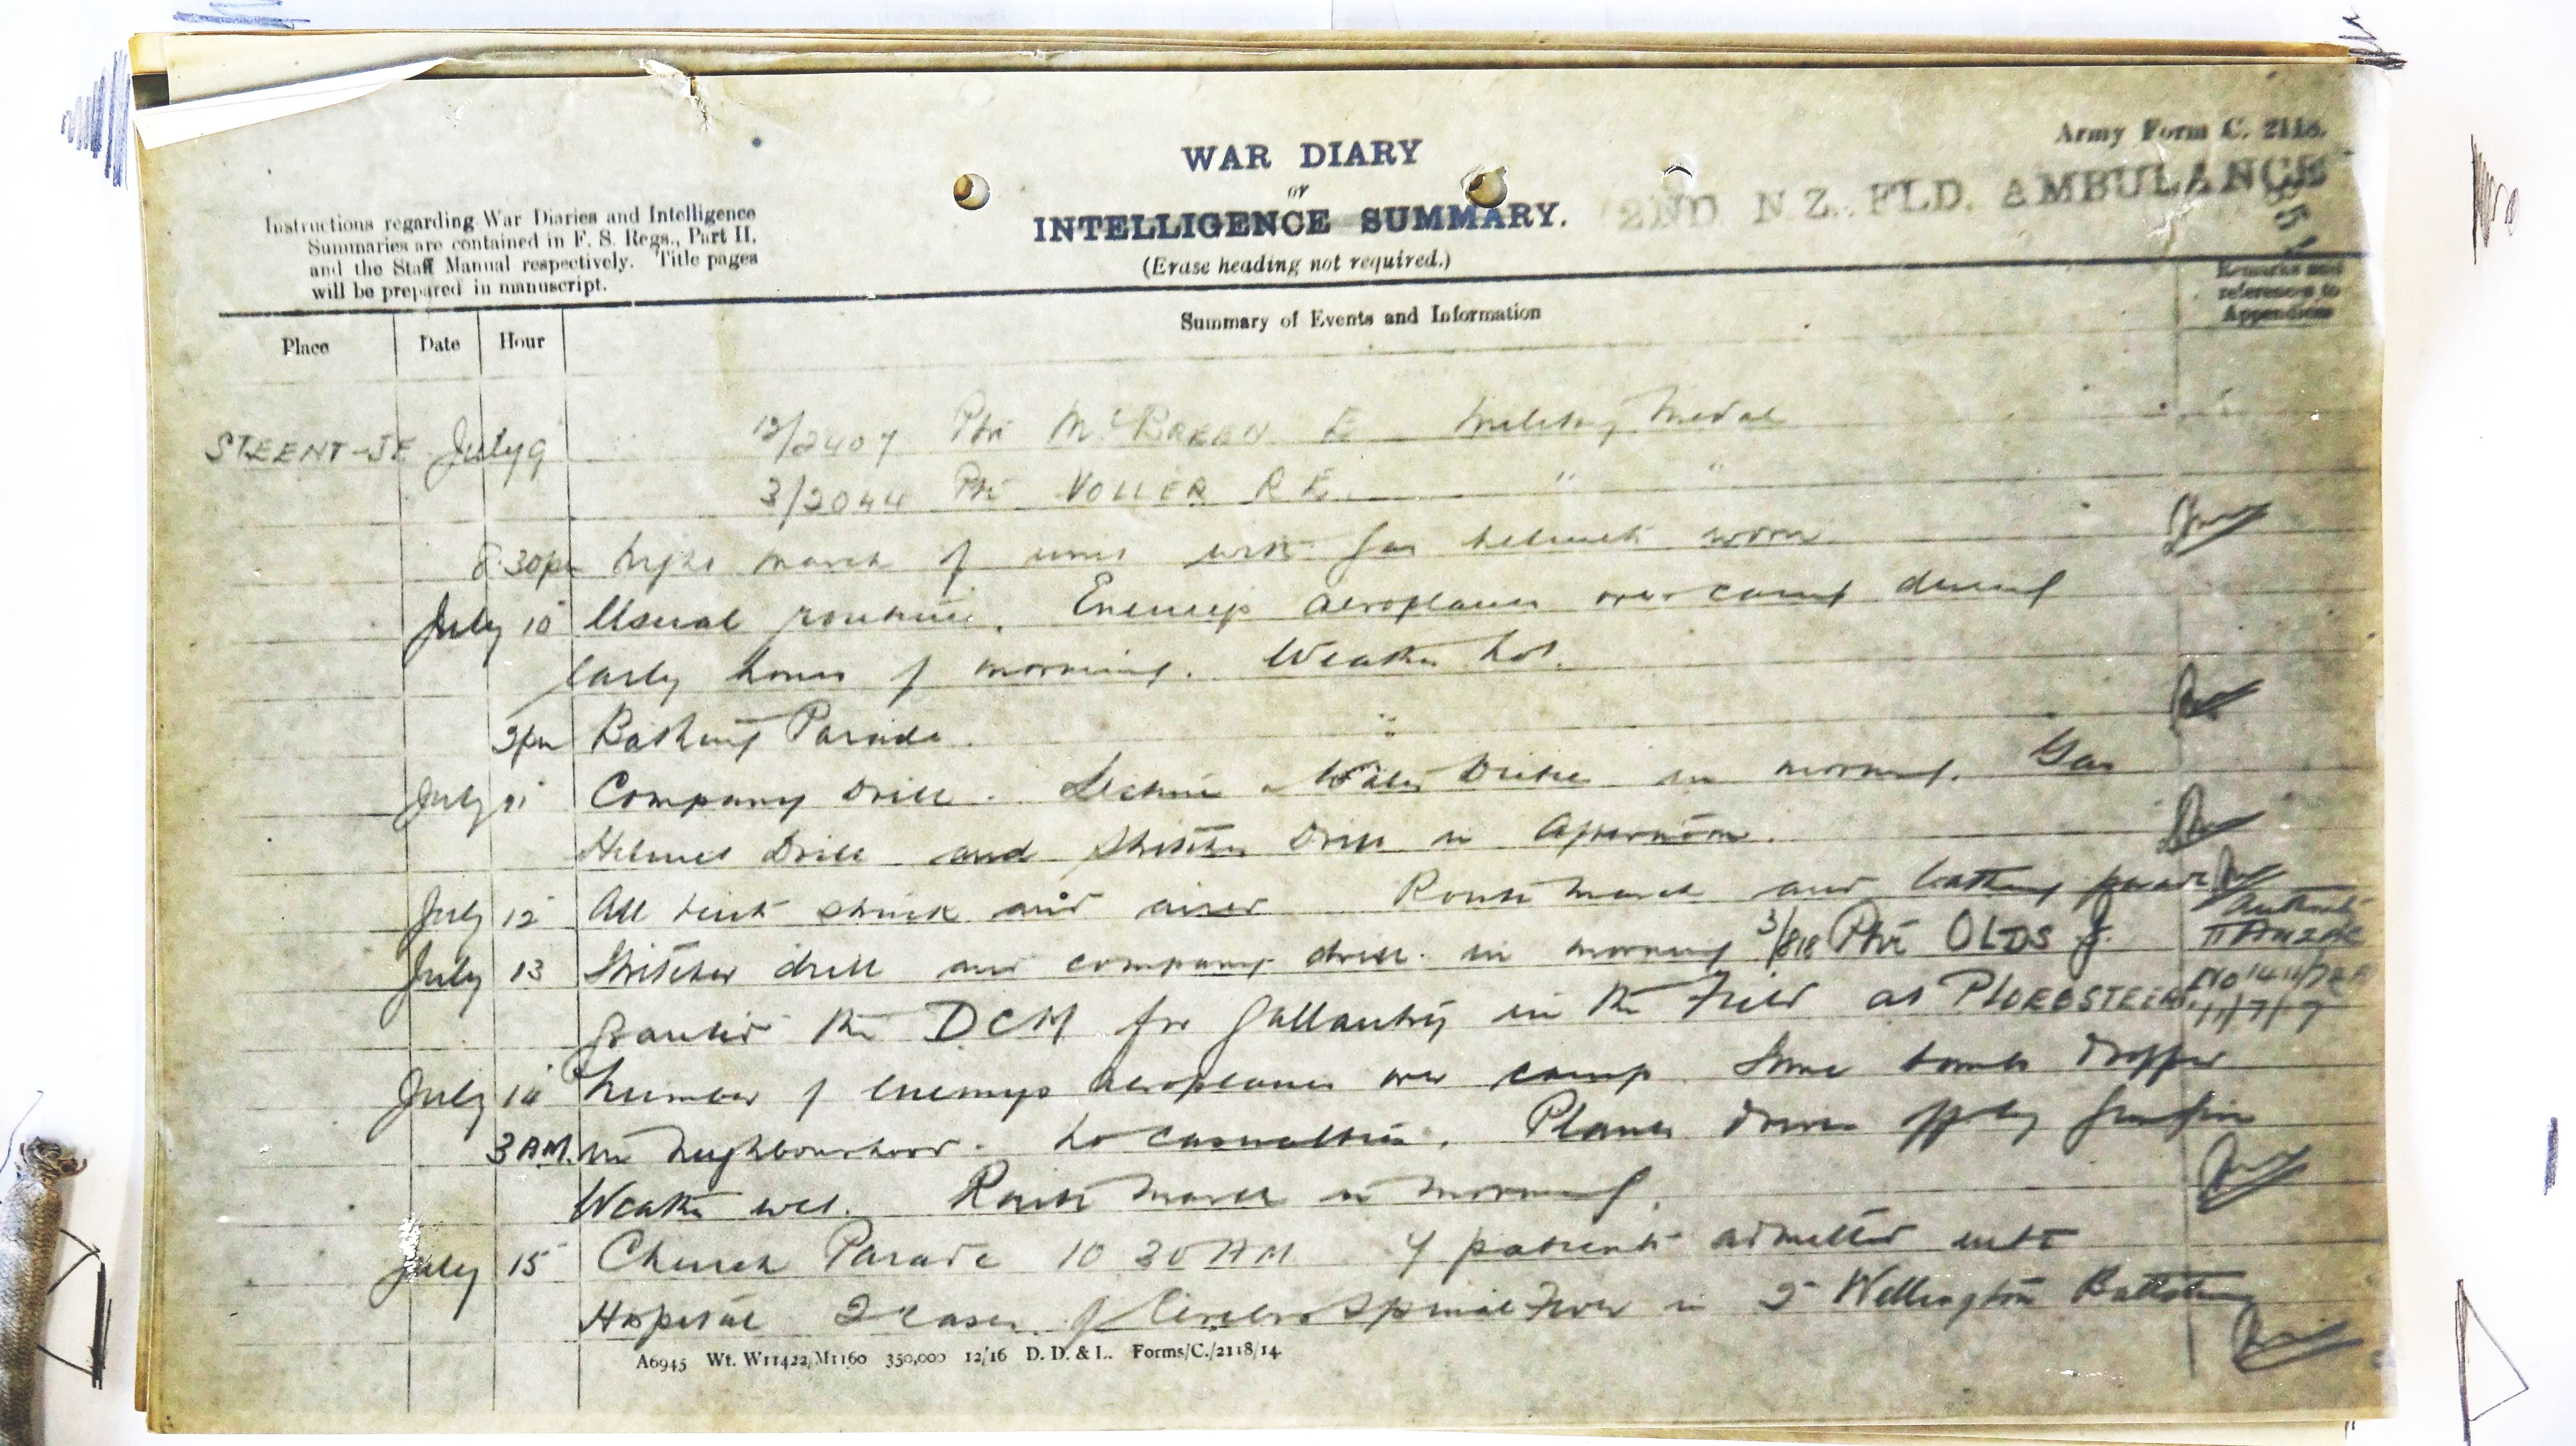 Army Form C. 2118.
WAR DIARY
or
INTELLIGENCE SUMMARY.
2ND N.Z. FLD. AMBULANCE
(Erase heading not required.)
Instructions regarding War Diaries and Intelligence
Summaries are contained in F. S. Regs., Part II,
and the Staff Manual respectively. Title pages
will be prepared in manuscript.
Remarks and
references to
Appendices
Place Date Hour Summary of Events and Information
STEENT-JE July 9 12/2407 Pte McBREEN E Military Medal
3/2044 Pte VOLLER R E. " "
8.30pm Night march of unit with gas helmets worn
July 10 Usual routine. Enemys aeroplanes over camp during
early hours of morning. Weather hot.
2pm Bathing Parade.
July 11 Company Drill. Lecture Water Duties in morning. Gas
Helmet Drill and Stretcher Drill in Afternoon.
July 12 All tents struck and aired Route March and bathing parade
July 13 Stretcher drill and company drill in morning 3/818 Pte OLDS J.
Authority
II ANZAC
granted the DCM for gallantry in the Field at PLOEGSTEERT
11/7/17
July 14 Number of enemys aeroplanes over camp. Some bombs dropped
3 AM. in neighbourhood. No casualties. Planes driven off by gunfire
Weather wet. Route March in morning.
July 15 Church Parade 10 30 AM 4 patients admitted into
Hospital 2 cases of Cerebro Spinal Fever in 2 Wellington Battalion
A6945 Wt. W11422/M1160 350,000 12/16 D. D. & L. Forms/C./2118/14